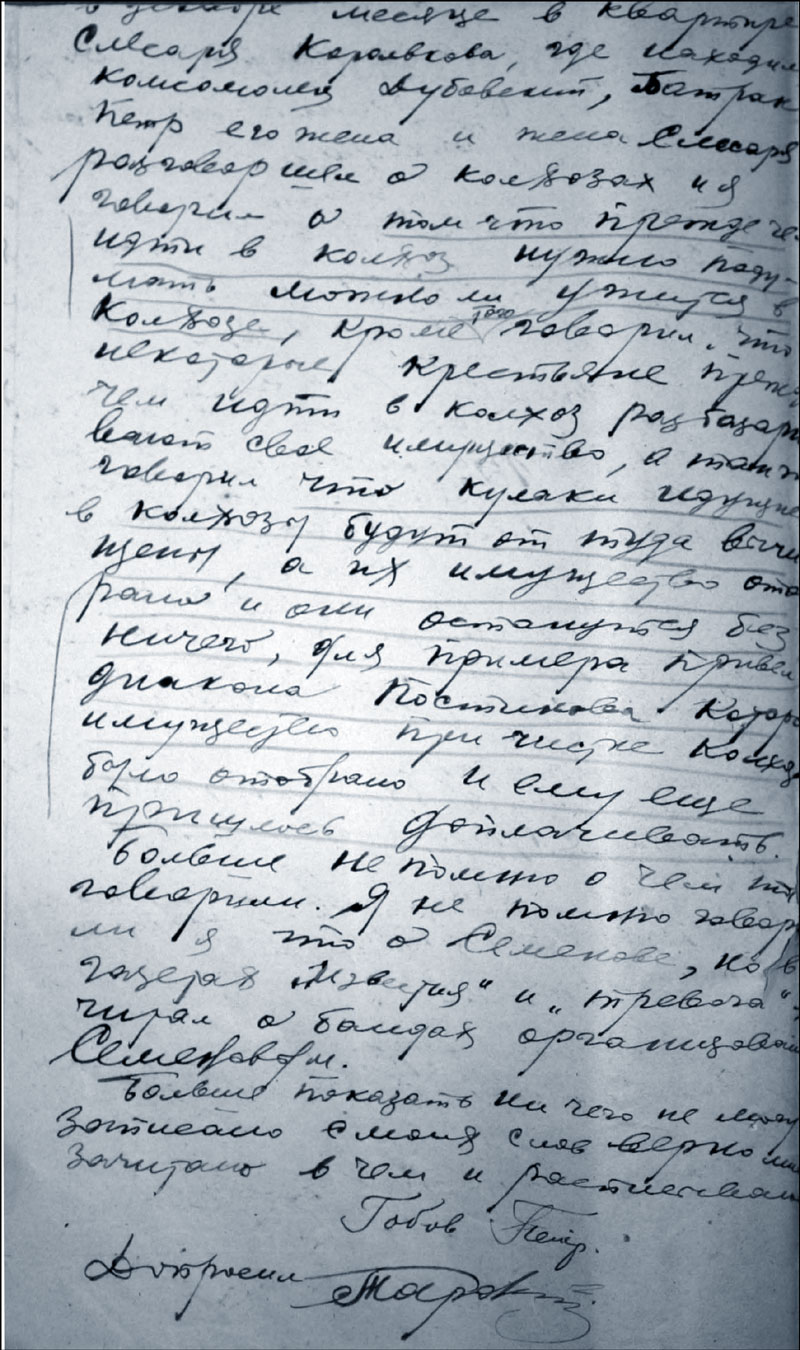 в декабре месяце в квартире
Слесаря Королькова, где находил
комсомолец Дубовский, Батрак
Петр его жена и жена Слесаря
разговор шел о колхозах и я
говорил о том что прежде че
идти в колхоз нужно поду-
мать можно ли ужится в
Колхозе, кроме того говорил, что
некоторые крестьяне преж
чем идти в колхоз разбазари
вают свое имущество, а такж
говорил что кулаки идущие
в колхозы будут от туда вычи
щены, а их имущество ото
рано и они останутся без
ничего, для примера привел
диакона Постникова Которо
имущество при чистке колхоз
было отобрано и ему еще
пришлось доплачивать.
Больше не помню о чем
говорили. Я не помню говор
ли я что о Семенове, но в
газетах „Известия" и „тревога"
читал о бандах организован
Семеновым.
Больше показать ни чего не могу
Записано с моих слов верно мне
зачитано в чем и расписываюсь
Гобов Петр.
Допросил